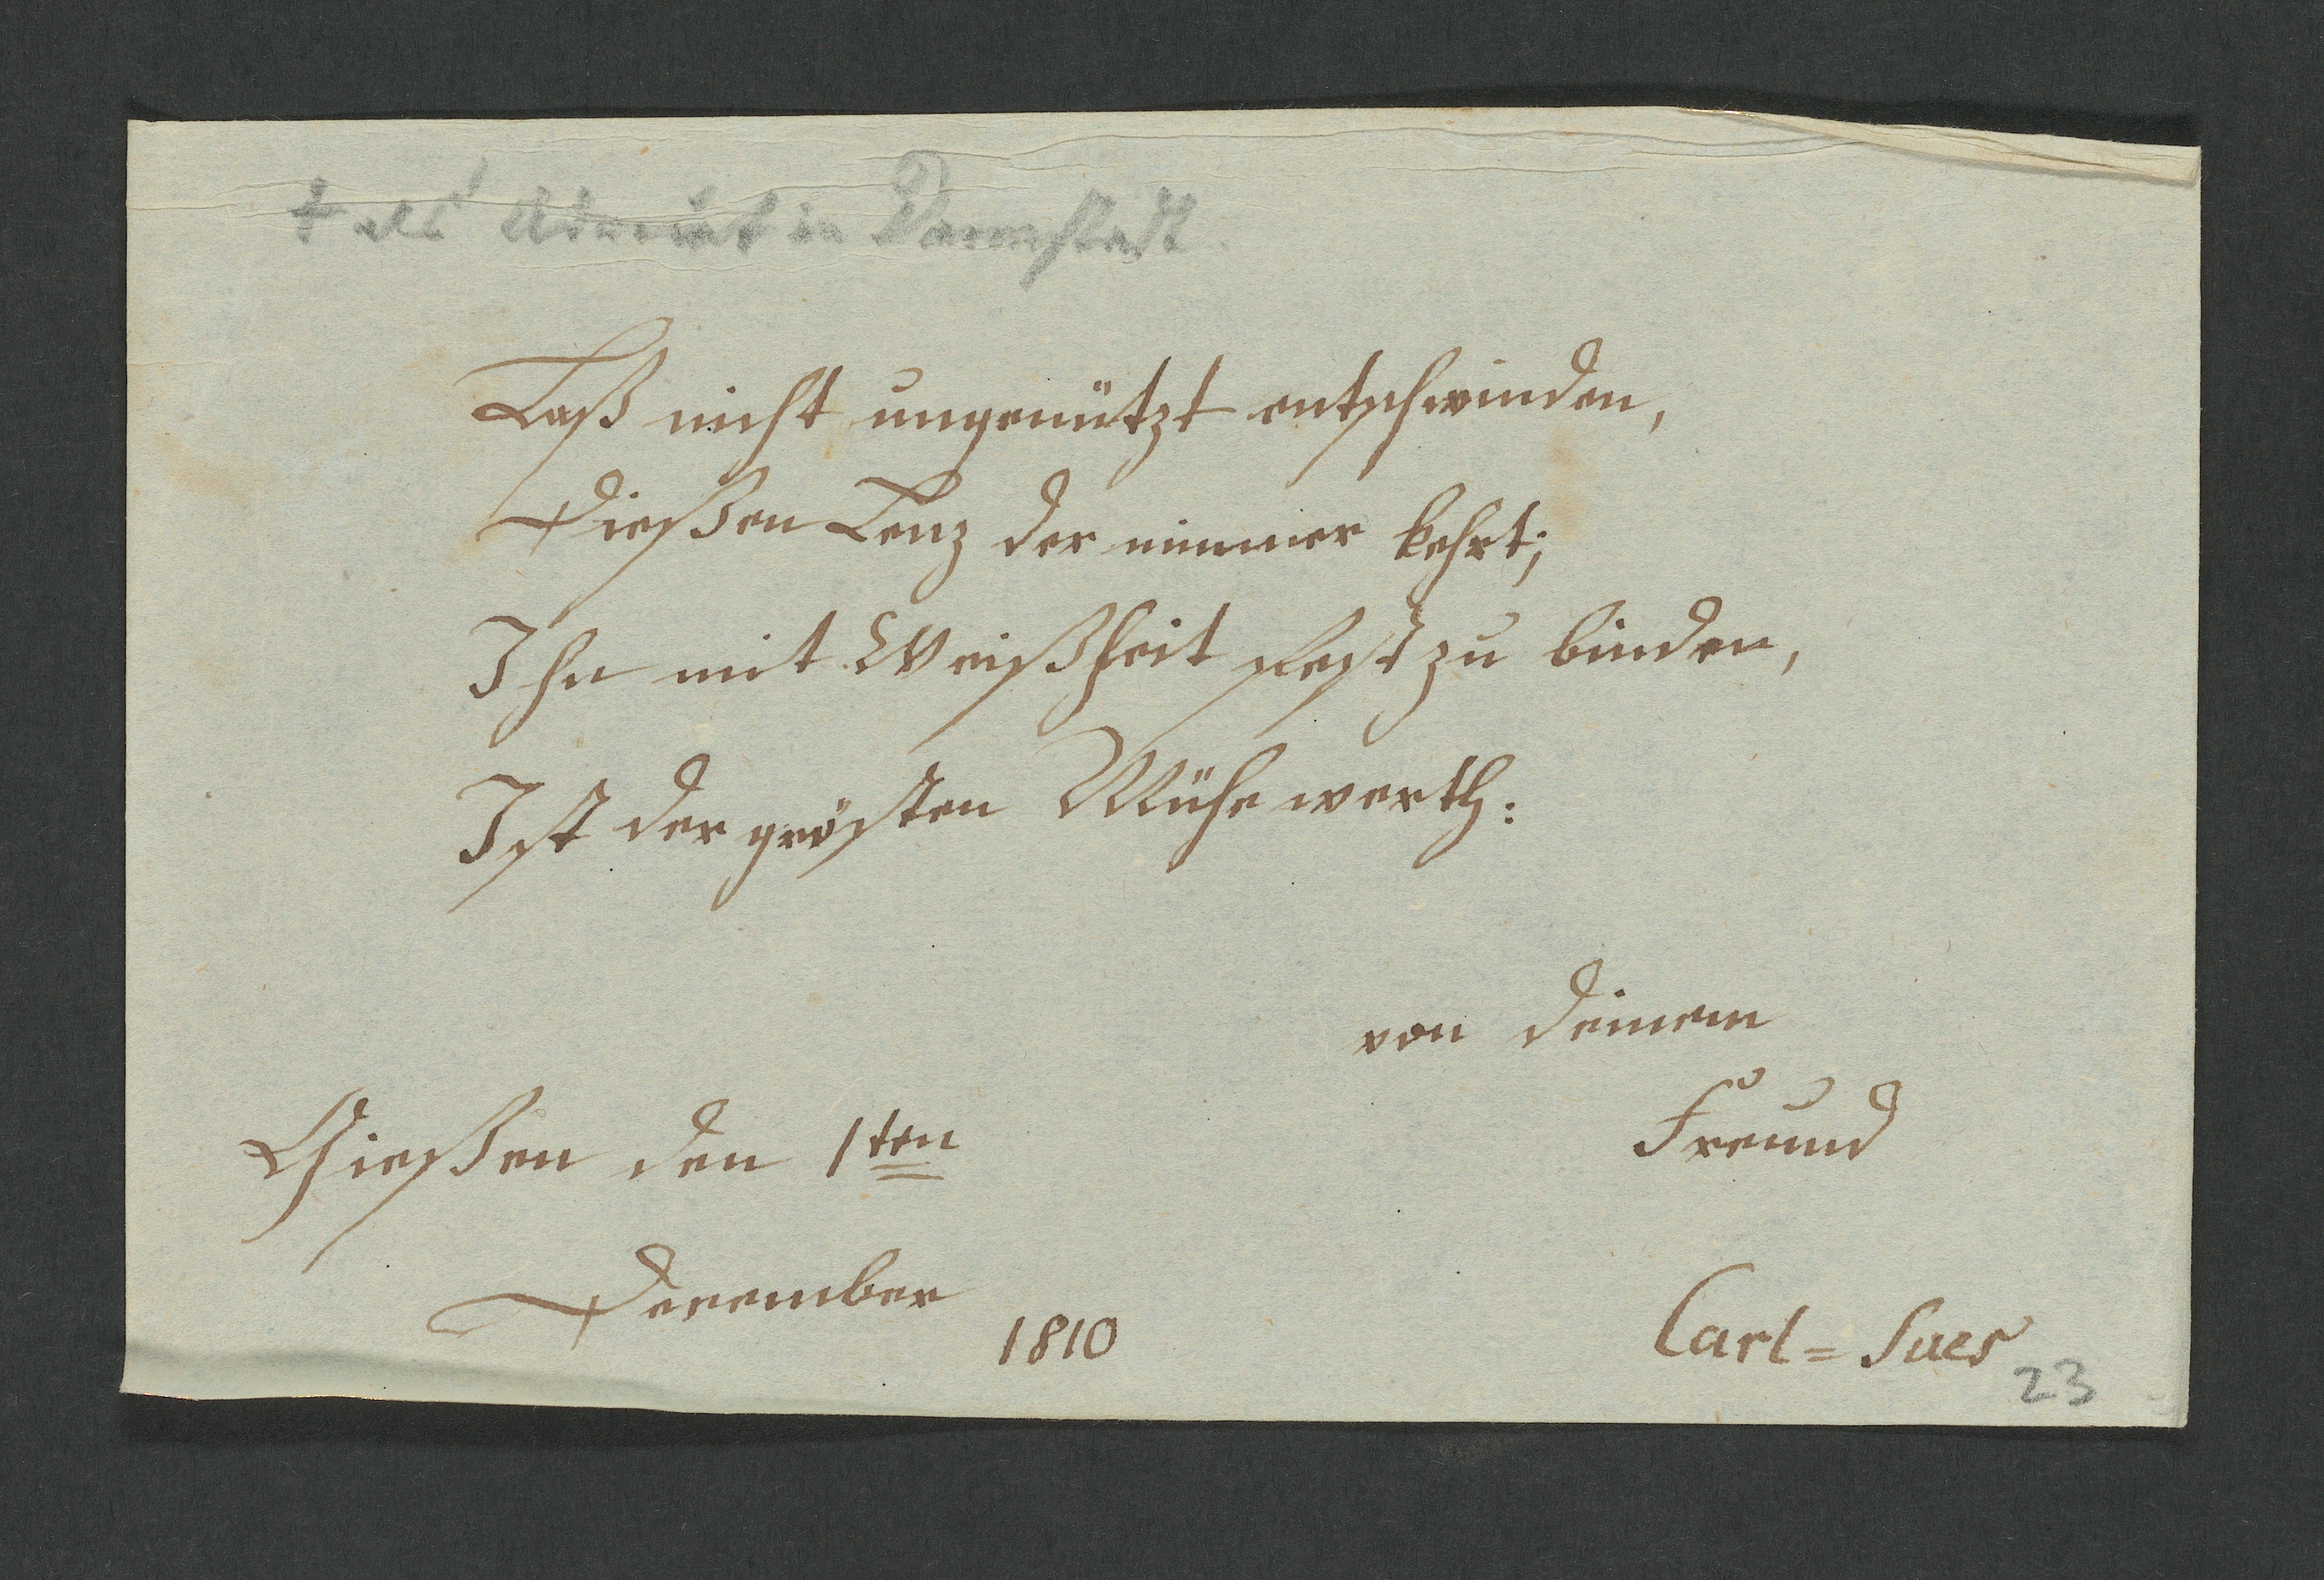 † als Advocat in Darmstadt.
Laß nicht ungenützt entschwinden,
Dießen Lenz der nimmer kehrt;
Ihn mit Weißheit fest zu binden,
Ist der grösten Mühe werth:
von deinem
Freund
Gießen den 1ten
December
1810
Carl = Sues
23